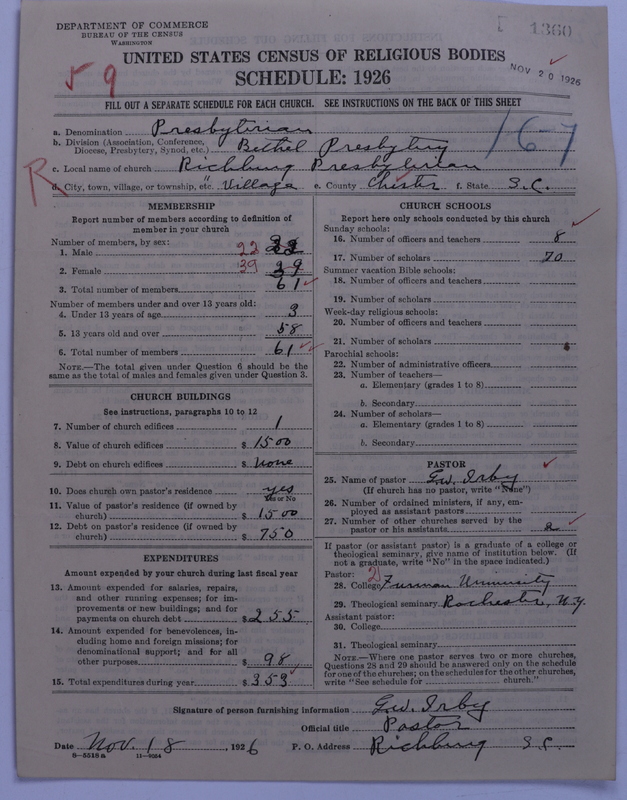 DEPARTMENT OF COMMERCE
BUREAU OF THE CENSUS
WASHINGTON
1360
UNITED STATES CENSUS OF RELIGIOUS BODIES
SCHEDULE: 1926
NOV 20 1926
59
FILL OUT A SEPARATE SCHEDULE FOR EACH CHURCH. SEE INSTRUCTIONS ON THE BACK OF THIS SHEET
16-7
R
a. Denomination Presbyterian
b. Division (Association, Conference, Diocese, Presbytery, Synod, etc.) Bethel Presbytery
c. Local name of church Richburg Presbyterian
d. City, town, village, or township, etc. Village e. County Chester f. State S.C.
MEMBERSHIP
Report number of members according to definition of
member in your church
Number of members, by sex:
1. Male 22
2. Female 39 39
3. Total number of members 61
Number of members under and over 13 years old:
4. Under 13 years of age 3
5. 13 years old and over 58
6. Total number of members 61
NOTE.—The total given under Question 6 should be
same as the total of males and females given under Question 3.
CHURCH BUILDINGS
See instructions, paragraphs 10 to 12
7. Number of church edifices 1
8. Value of church edifices $ 1500
9. Debt on church edifices $ None
10. Does church own pastor's residence yes
Yes or No
11. Value of pastor's residence (if owned by
church) $ 1500
12. Debt on pastor's residence (if owned by
church) $ 750
EXPENDITURES
Amount expended by your church during last fiscal year
13. Amount expended for salaries, repairs,
and other running expenses; for im-
provements or new buildings; and for
payments on church debt $ 255
14. Amount expended for benevolences, in-
cluding home and foreign missions; for
denominational support; and for all
other purposes $ 98
15. Total expenditures during year $ 353
CHURCH SCHOOLS
Report here only schools conducted by this church
Sunday schools:
16. Number of officers and teachers 8
17. Number of scholars 70
Summer vacation Bible schools:
18. Number of officers and teachers
19. Number of scholars
Week-day religious schools:
20. Number of officers and teachers
21. Number of scholars
Parochial schools:
22. Number of administrative officers
23. Number of teachers—
a. Elementary (grades 1 to 8)
b. Secondary
24. Number of scholars—
a. Elementary (grades 1 to 8)
b. Secondary
PASTOR
25. Name of pastor G.W. Irby
(If church has no pastor, write "None")
26. Number of ordained ministers, if any, em-
ployed as assistant pastors
27. Number of other churches served by the
pastor or his assistants 2
If pastor (or assistant pastor) is a graduate of a college or
theological seminary, give name of institution below. (If
not a graduate, write "No" in the space indicated.)
Pastor: 2
28. College Furman University
29. Theological seminary Rochester, N.Y.
Assistant pastor:
30. College
31. Theological seminary
NOTE.—Where one pastor serves two or more churches,
Questions 28 and 29 should be answered only on the schedule
for one of the churches; on the schedules for the other churches,
write "See schedule for church."
Signature of person furnishing information G.W. Irby
Official title Pastor
Date Nov. 18, 1926 P. O. Address Richburg S.C.
8-5518a 11-9064